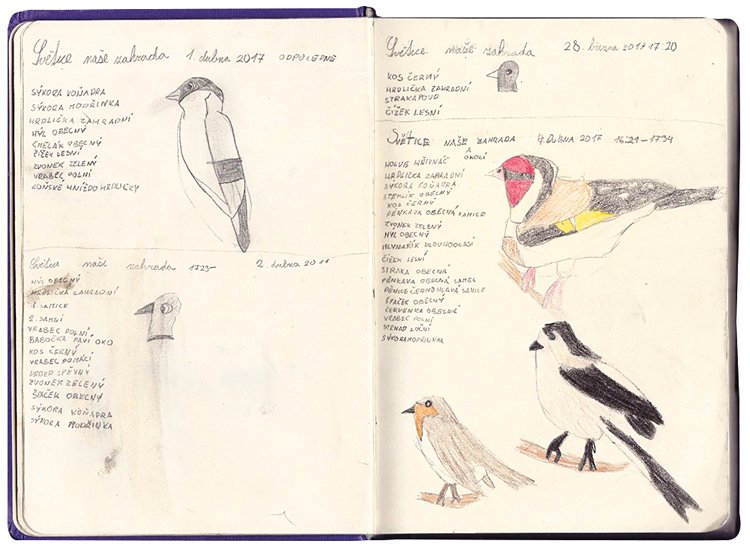 Světice naše zahrada 1. dubna 2017 ODPOLEDNE
SÝKORA KOŇADRA
SÝKORA MODŘINKA
HRDLIČKA ZAHRADNÍ
HÝL OBECNÝ
ČMELÁK OBECNÝ
ČÍŽEK LESNÍ
ZVONEK ZELENÝ
VRABEC POLNÍ
LOŇSKÉ HNÍZDO HRDLIČKY
Světice naše zahrada 1723- 2 dubna
HÝL OBECNÝ
HRDLIČKA ZAHRADNÍ
1. SAMICE
2. SAMCI
VRABEC POLNÍ
BABOČKA PAVÍ OKO
KOS ČERNÝ
VRABEC DOMÁCÍ
DROZD ZPĚVNÝ
ZVONEK ZELENÝ
ŠPAČEK OBECNÝ
SÝKORA KOŇADRA
SÝKORA MODŘINKA
Světice naše zahrada 28 března 2017 17:20
KOS ČERNÝ
HRDLIČKA ZAHRADNÍ
STRAKAPOUD
ČÍŽEK LESNÍ
SVĚTICE NAŠE ZAHRADA A OKOLÍ 4 DUBNA 2017 16:21-1734
HOLUB HŘIVNÁČ
HRDLIČKA ZAHRADNÍ
SÝKORA KOŇADRA
STEHLÍK OBECNÝ
KOS ČERNÝ
PĚNKAVA OBECNÁ SAMICE
ZVONEK ZELENÝ
HÝL OBECNÝ
MLYNAŘÍK DLOUHOOCASÍ
ČÍŽEK LESNÍ
STRAKA OBECNÁ
PĚNKAVA OBECNÁ SAMEC
PĚNICE ČERNOHLAVÁ SAMICE
ŠPAČEK OBECNÝ
ČERVENKA OBECNÁ
VRABEC POLNÍ
STRNAD LUČNÍ
SÝKORA PARUKÁŘKA